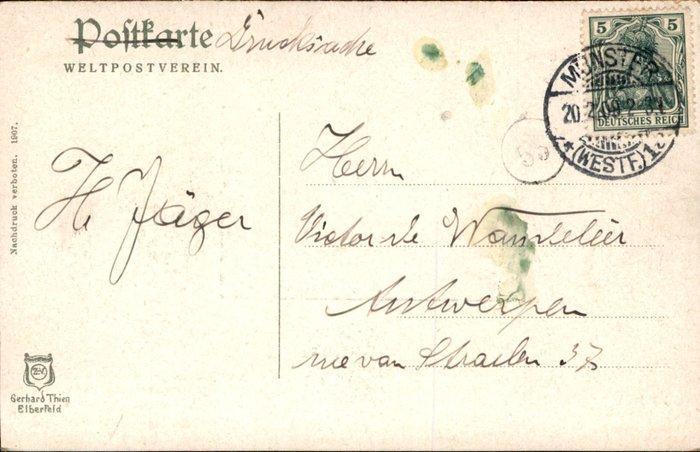 Postkarte Drucksache
WELTPOSTVEREIN.
5 5
DEUTSCHES REICH
MÜNSTER
(WESTF.)
Nachdruck verboten. 1907.
H Jäger
Herrn
Victor de Wandeleer
Antwerpen
rue van Straelen 37
Gerhard Thien
Elberfeld